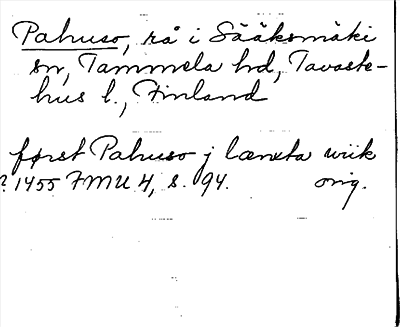 Pahuso, rå i Sääksmäki
sn, Tammela hd, Tavaste-
hus l., Finland
først Pahuso j lænta wiik
? 1455 FMU 4, s. 94. orig.